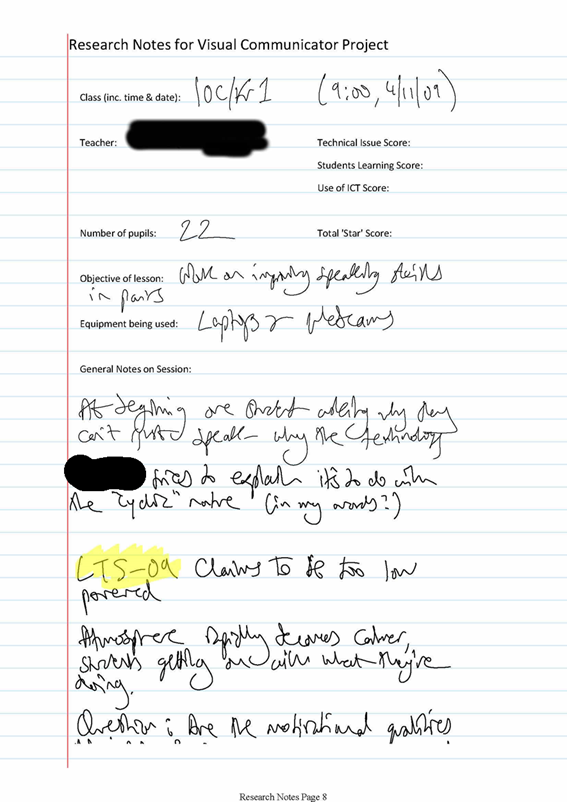 Research Notes for Visual Communicator Project
Class (inc. time & date): 10C/Kr1 (9:00, 4/11/09)
Teacher:
Technical Issue Score:
Students Learning Score:
Use of ICT Score:
Number of pupils: 22
Total 'Star' Score:
Objective of lesson: Work on improving speaking skills
in pairs
Equipment being used: Laptops & Webcams
General Notes on Session:
At beginning one student asking why they
can't just speak - why the technology
tries to explain it's to do with
the "cyclic" nature (in my words?)
LTS-09 Claims to be too low
powered
Atmosphere rapidly becomes calmer,
students getting on with what they're
doing.
Question: Are the motivational qualities
Research Notes Page 8